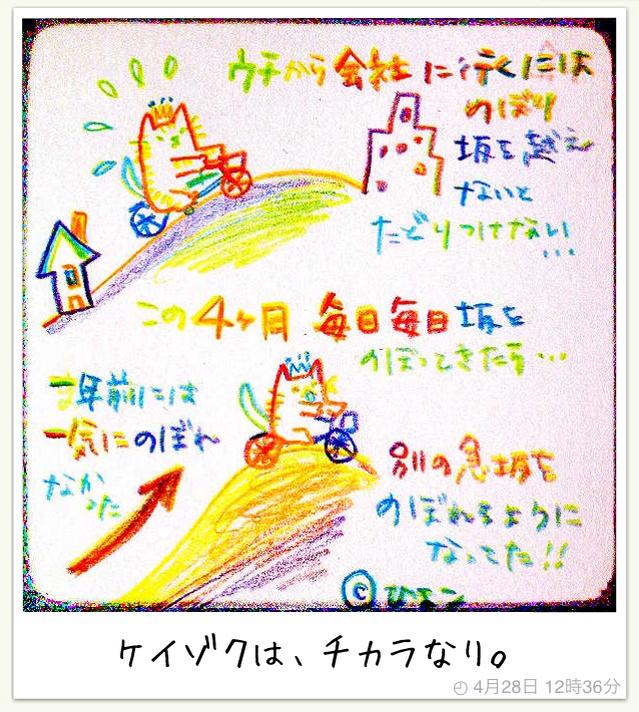 ウチから会社に行くには
のぼり
坂を越え
ないと
たどりつけない!
...
この4ヶ月 毎日毎日坂を
のぼってきたら…
年前には
一気にのぼれ
なかった
別の急坂を
のぼれるように
なってた!!
©ひろこ
ケイゾクは、チカラなり。
4月28日 12時36分